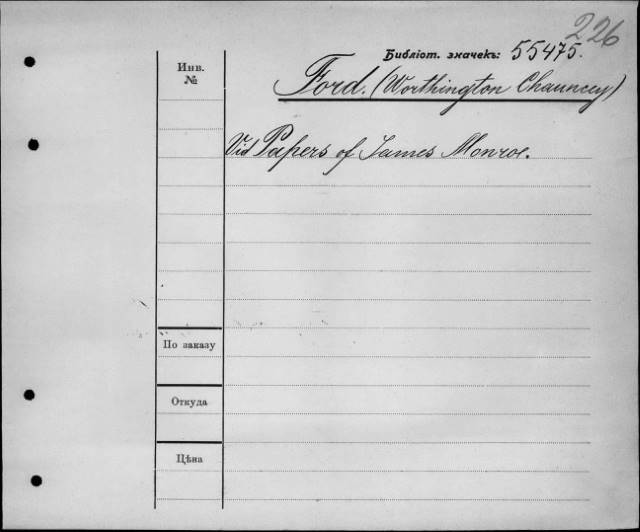 226
Библіот. значекъ: 55475.
Инв.
№
Ford. (Worthington Chauncey)
Vid Papers of James Monroe.
По заказу
Откуда
Цѣна